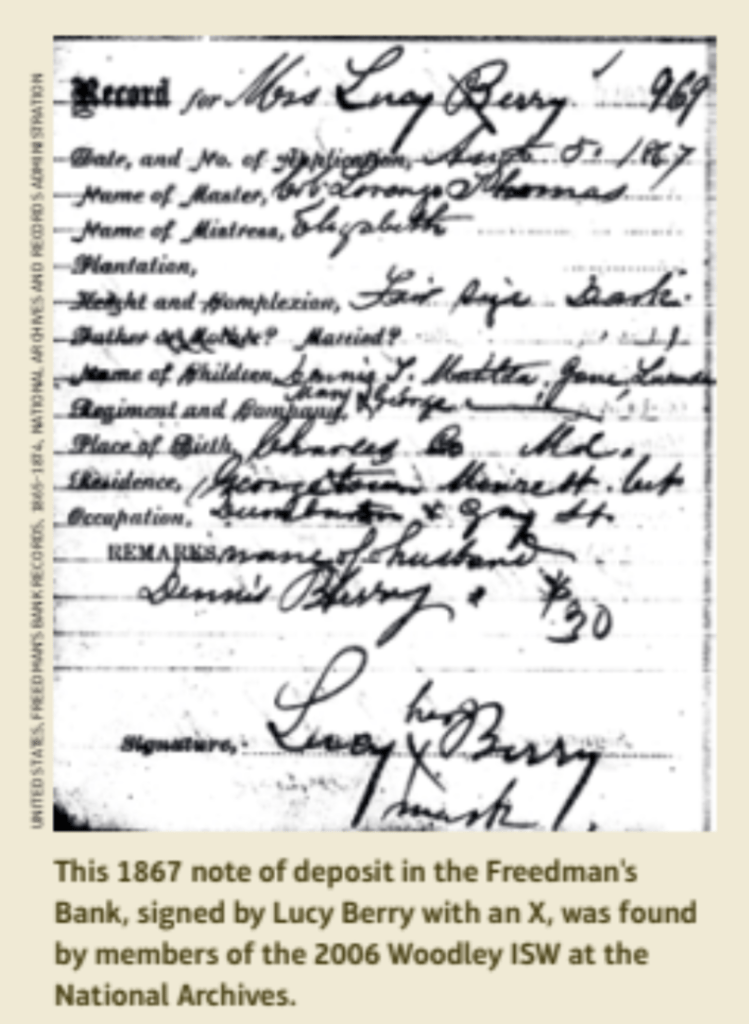 Record for Mrs Lucy Berry 969
Date, and No. of Application, Augt 5. 1867
Name of Master, Col Lorenzo Thomas
Name of Mistress, Elizabeth
Plantation,
Height and Complexion, Fair size Dark.
Father or Mother? Married?
Name of Children, Dennis T. Matilda, Jane,
Mary & George
Regiment and Company,
Place of Birth, Charles Co Md.
Residence, Georgetown St. bet
Occupation, Dumbarton & Gay St.
REMARKS, name of husband
Dennis Berry $
30
her
Signature, Lucy X Berry
mark
UNITED STATES, FREEDMAN'S BANK RECORDS, 1865-1874, NATIONAL ARCHIVES AND RECORDS ADMINISTRATION
This 1867 note of deposit in the Freedman's
Bank, signed by Lucy Berry with an X, was found
by members of the 2006 Woodley ISW at the
National Archives.